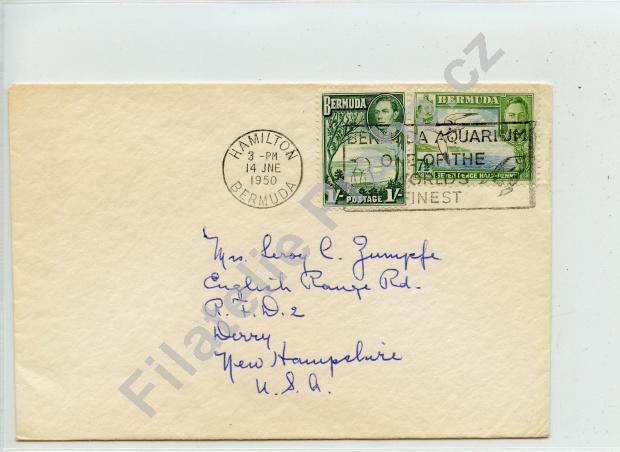 BERMUDA
1/- POSTAGE 1/-
BERMUDA
7½
SEVEN PENCE HALF-PENNY
HAMILTON
3 -PM
14 JNE
1950
BERMUDA
BERMUDA AQUARIUM
ONE OF THE
WORLDS
FINEST
Mrs. Leroy C. Zumpfe
English Range Rd.
R.F.D. 2
Derry
New Hampshire
U.S.A.